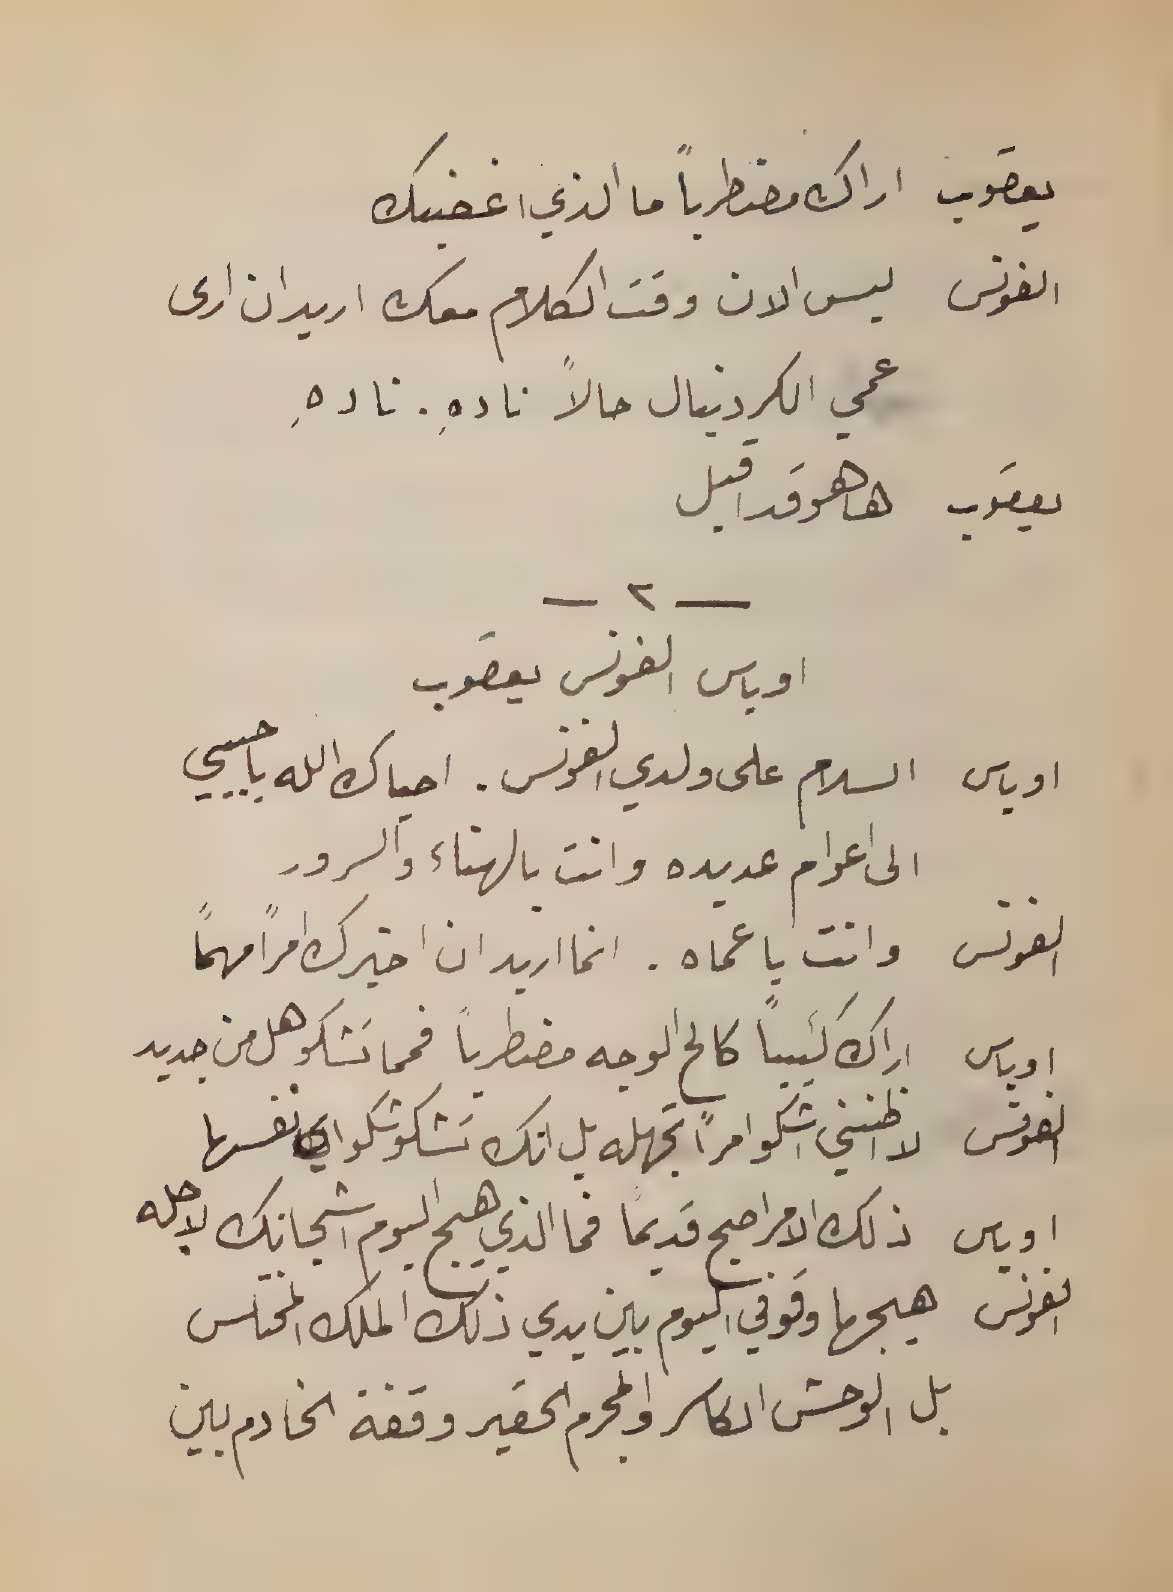 يعقوب اراك مضطرباً ما الذي اغضبك
الفونس ليس الان وقت الكلام معك اريد ان ارى
عمي الكردينال حالاً ناده . ناده
يعقوب ها هو قد اقبل
— ٢ —
اوباس الفونس يعقوب
اوباس السلام على ولدي الفونس . احياك الله يا حبيبي
الى اعوام عديده وانت بالهناء والسرور
الفونس وانت يا عماه . انما اريد ان اخبرك امراً مهماً
اوباس اراك كئيباً كالح الوجه مضطرباً فمما تشكو هل من جديد
الفونس لا اظنني اشكو امراً تجهله بل انك تشكو شكواي نفسها
اوباس ذلك الامر اصبح قديماً فما الذي هيج اليوم اشجانك لاجله
الفونس هيجها وقوفي اليوم بين يدي ذلك الملك المختلس
بل الوحش الكاسر والمجرم الحقير وقفة الخادم بين